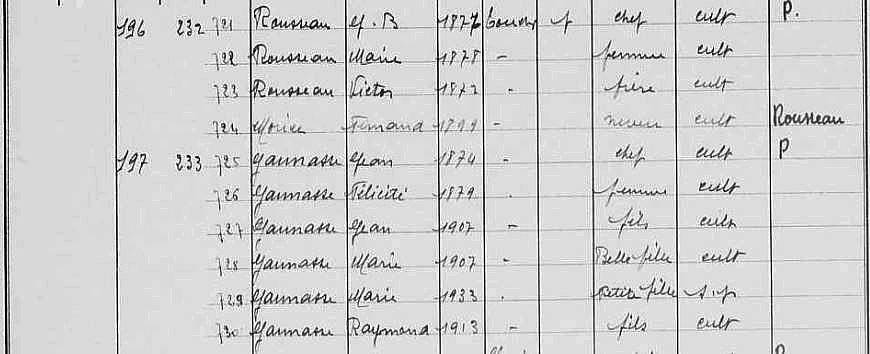 196 232 721 Rousseau J. B 1877 f chef cult P.
722 Rousseau Marie 1878 - femme cult
723 Rousseau Victor 1872 - frère cult
724 Fernand 1899 - neveu cult Rousseau
197 233 725 Gaunasse Jean 1874 - chef cult P
726 Gaunasse Félicité 1879 . femme cult
727 Gaunasse Jean 1907 - fils cult
728 Gaunasse Marie 1907 - Belle fille cult
729 Gaunasse Marie 1933 . Petite fille s.p
730 Gaunasse Raymond 1913 - fils cult